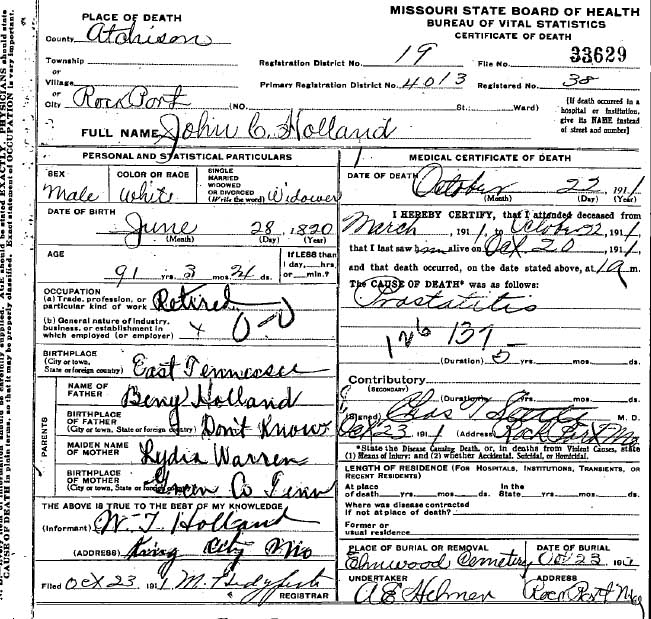 MISSOURI STATE BOARD OF HEALTH
BUREAU OF VITAL STATISTICS
CERTIFICATE OF DEATH
PLACE OF DEATH
County Atchison
Township
or
Village
or
City Rock Port (NO. St.; Ward)
Registration District No. 19 File No. 33629
Primary Registration District No. 4013 Registered No. 38
[If death occurred in a
hospital or institution,
give its NAME instead
of street and number]
FULL NAME John C. Holland
PERSONAL AND STATISTICAL PARTICULARS
SEX Male
COLOR OR RACE White
SINGLE
MARRIED
WIDOWED
OR DIVORCED
(Write the word) Widower
DATE OF BIRTH
June 28, 1820
(Month) (Day) (Year)
AGE
91 yrs. 3 mos. 24 ds.
If LESS than
1 day,...hrs
or...min.?
OCCUPATION
(a) Trade, profession, or
particular kind of work Retired
(b) General nature of industry,
business, or establishment in
which employed (or employer)
BIRTHPLACE
(City or town,
State or foreign country) East Tennessee
PARENTS
NAME OF
FATHER Benj Holland
BIRTHPLACE
OF FATHER
(City or town, State or foreign country) Don't Know
MAIDEN NAME
OF MOTHER Lydia Warren
BIRTHPLACE
OF MOTHER
(City or town, State or foreign country) Green Co Tenn
THE ABOVE IS TRUE TO THE BEST OF MY KNOWLEDGE
(Informant) W. T. Holland
(ADDRESS) King City Mo
Filed Oct 23 1911
REGISTRAR
MEDICAL CERTIFICATE OF DEATH
DATE OF DEATH
October 22, 1911
(Month) (Day) (Year)
I HEREBY CERTIFY, that I attended deceased from
March, 1911, to October 22, 1911,
that I last saw him alive on Oct 20, 1911,
and that death occurred, on the date stated above, at 1 a m.
The CAUSE OF DEATH* was as follows:
Prostatitis
126 137
(Duration) 5 yrs. mos. ds.
Contributory
(SECONDARY)
(Duration) yrs. mos. ds.
(Signed) Chas M. D.
Oct 23 1911 (Address) Rock Port Mo
*State the Disease Causing Death, or, in deaths from Violent Causes, state
(1) Means of Injury; and (2) whether Accidental, Suicidal, or Homicidal.
LENGTH OF RESIDENCE (FOR HOSPITALS, INSTITUTIONS, TRANSIENTS, OR
RECENT RESIDENTS)
At place
of death yrs. mos. ds.
In the
State yrs. mos. ds.
Where was disease contracted
if not at place of death?
Former or
usual residence
PLACE OF BURIAL OR REMOVAL DATE OF BURIAL
Elmwood Cemetery Oct 23 191
UNDERTAKER ADDRESS
A E Helmer Rock Port Mo